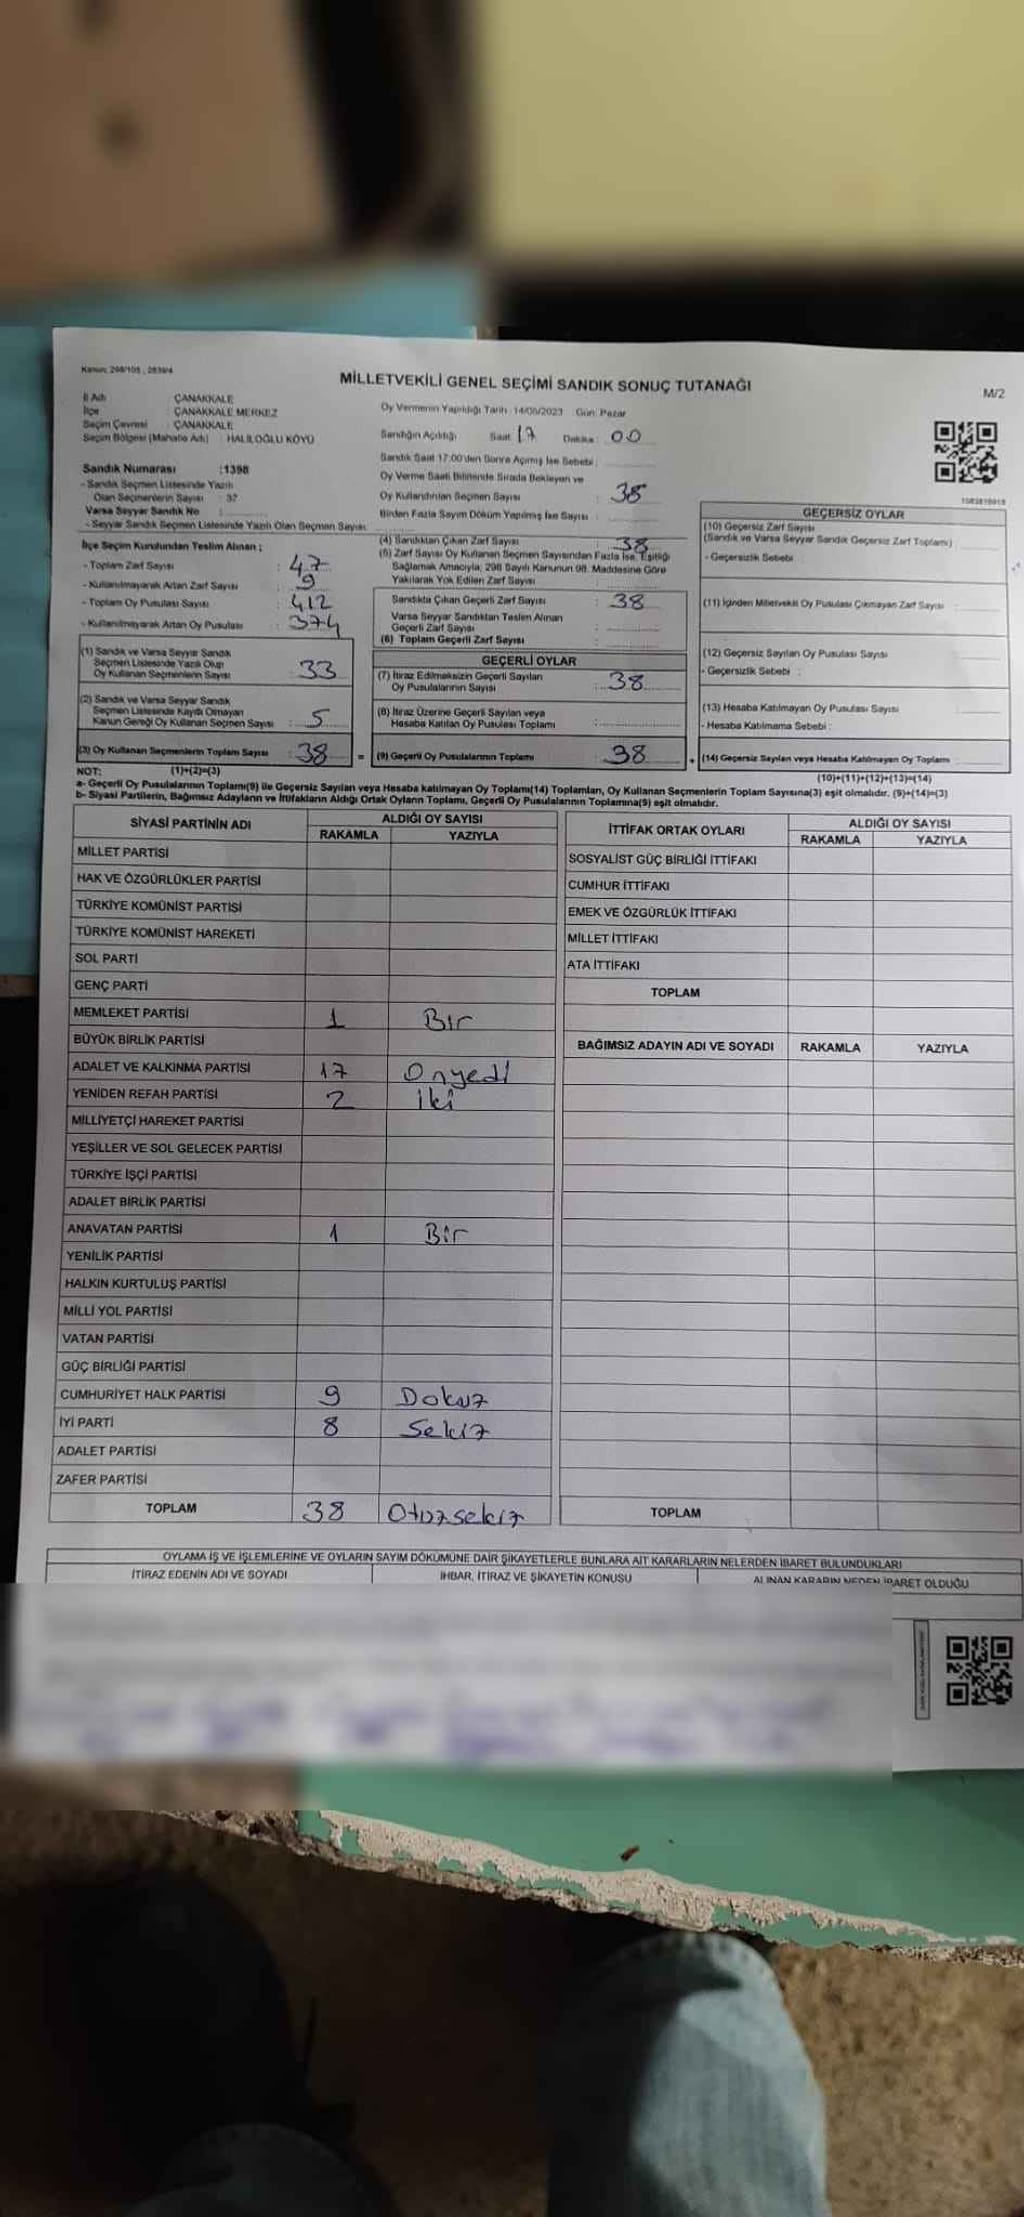 Kanun: 298/105, 2839/4
MİLLETVEKİLİ GENEL SEÇİMİ SANDIK SONUÇ TUTANAĞI
M/2
İl Adı : ÇANAKKALE
İlçe : ÇANAKKALE MERKEZ
Seçim Çevresi : ÇANAKKALE
Seçim Bölgesi (Mahalle Adı) : HALİLOĞLU KÖYÜ
Oy Vermenin Yapıldığı Tarih :14/05/2023 Gün: Pazar
Sandığın Açıldığı Saat : 17 Dakika : 00
Sandık Saat 17:00'den Sonra Açılmış İse Sebebi :
Oy Verme Saati Bitiminde Sırada Bekleyen ve
Oy Kullandırılan Seçmen Sayısı : 38
Birden Fazla Sayım Döküm Yapılmış İse Sayısı :
Sandık Numarası :1398
- Sandık Seçmen Listesinde Yazılı
Olan Seçmenlerin Sayısı : 37
Varsa Seyyar Sandık No :
- Seyyar Sandık Seçmen Listesinde Yazılı Olan Seçmen Sayısı:
İlçe Seçim Kurulundan Teslim Alınan ;
- Toplam Zarf Sayısı : 47
- Kullanılmayarak Artan Zarf Sayısı : 9
- Toplam Oy Pusulası Sayısı : 412
- Kullanılmayarak Artan Oy Pusulası : 374
(1) Sandık ve Varsa Seyyar Sandık
Seçmen Listesinde Yazılı Olup
Oy Kullanan Seçmenlerin Sayısı : 33
(2) Sandık ve Varsa Seyyar Sandık
Seçmen Listesinde Kaydı Olmayan
Kanun Gereği Oy Kullanan Seçmen Sayısı : 5
(3) Oy Kullanan Seçmenlerin Toplam Sayısı : 38
(1)+(2)=(3)
(4) Sandıktan Çıkan Zarf Sayısı : 38
(5) Zarf Sayısı Oy Kullanan Seçmen Sayısından Fazla İse, Eşitliği
Sağlamak Amacıyla, 298 Sayılı Kanunun 98. Maddesine Göre
Yakılarak Yok Edilen Zarf Sayısı :
Sandıkta Çıkan Geçerli Zarf Sayısı : 38
Varsa Seyyar Sandıktan Teslim Alınan
Geçerli Zarf Sayısı :
(6) Toplam Geçerli Zarf Sayısı :
GEÇERLİ OYLAR
(7) İtiraz Edilmeksizin Geçerli Sayılan
Oy Pusulalarının Sayısı : 38
(8) İtiraz Üzerine Geçerli Sayılan veya
Hesaba Katılan Oy Pusulası Toplamı :
= (9) Geçerli Oy Pusulalarının Toplamı : 38 +
GEÇERSİZ OYLAR
(10) Geçersiz Zarf Sayısı
(Sandık ve Varsa Seyyar Sandık Geçersiz Zarf Toplamı) :
- Geçersizlik Sebebi :
(11) İçinden Milletvekili Oy Pusulası Çıkmayan Zarf Sayısı :
(12) Geçersiz Sayılan Oy Pusulası Sayısı :
- Geçersizlik Sebebi :
(13) Hesaba Katılmayan Oy Pusulası Sayısı :
- Hesaba Katılmama Sebebi :
(14) Geçersiz Sayılan veya Hesaba Katılmayan Oy Toplamı :
(10)+(11)+(12)+(13)=(14)
NOT:
a- Geçerli Oy Pusulalarının Toplamı(9) ile Geçersiz Sayılan veya Hesaba katılmayan Oy Toplamı(14) Toplamları, Oy Kullanan Seçmenlerin Toplam Sayısına(3) eşit olmalıdır. (9)+(14)=(3)
b- Siyasi Partilerin, Bağımsız Adayların ve İttifakların Aldığı Ortak Oyların Toplamı, Geçerli Oy Pusulalarının Toplamına(9) eşit olmalıdır.
SİYASİ PARTİNİN ADI ALDIĞI OY SAYISI
RAKAMLA YAZIYLA
MİLLET PARTİSİ
HAK VE ÖZGÜRLÜKLER PARTİSİ
TÜRKİYE KOMÜNİST PARTİSİ
TÜRKİYE KOMÜNİST HAREKETİ
SOL PARTİ
GENÇ PARTİ
MEMLEKET PARTİSİ 1 Bir
BÜYÜK BİRLİK PARTİSİ
ADALET VE KALKINMA PARTİSİ 17 Onyedi
YENİDEN REFAH PARTİSİ 2 iki
MİLLİYETÇİ HAREKET PARTİSİ
YEŞİLLER VE SOL GELECEK PARTİSİ
TÜRKİYE İŞÇİ PARTİSİ
ADALET BİRLİK PARTİSİ
ANAVATAN PARTİSİ 1 Bir
YENİLİK PARTİSİ
HALKIN KURTULUŞ PARTİSİ
MİLLİ YOL PARTİSİ
VATAN PARTİSİ
GÜÇ BİRLİĞİ PARTİSİ
CUMHURİYET HALK PARTİSİ 9 Dokuz
İYİ PARTİ 8 Sekiz
ADALET PARTİSİ
ZAFER PARTİSİ
TOPLAM 38 Otuzsekiz
İTTİFAK ORTAK OYLARI ALDIĞI OY SAYISI
RAKAMLA YAZIYLA
SOSYALİST GÜÇ BİRLİĞİ İTTİFAKI
CUMHUR İTTİFAKI
EMEK VE ÖZGÜRLÜK İTTİFAKI
MİLLET İTTİFAKI
ATA İTTİFAKI
TOPLAM
BAĞIMSIZ ADAYIN ADI VE SOYADI RAKAMLA YAZIYLA
TOPLAM
OYLAMA İŞ VE İŞLEMLERİNE VE OYLARIN SAYIM DÖKÜMÜNE DAİR ŞİKAYETLERLE BUNLARA AİT KARARLARIN NELERDEN İBARET BULUNDUKLARI
İTİRAZ EDENİN ADI VE SOYADI İHBAR, İTİRAZ VE ŞİKAYETİN KONUSU ALINAN KARARIN NEDEN İBARET OLDUĞU